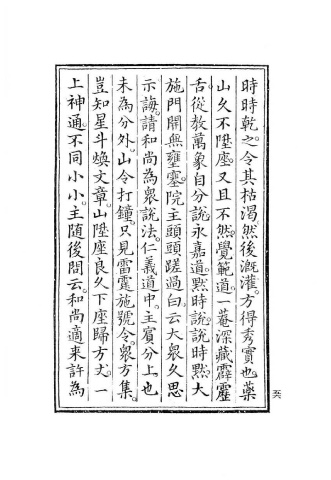 時時乾之令其枯渴然後漑灌方得秀實也藥
山久不陞座又且不然覺範道一菴深藏霹靂
舌從教萬象自分說永嘉道默時說說時默大
施門開無壅塞院主頭頭蹉過白云大衆久思
示誨請和尚為衆說法仁義道中主賓分上也
未為分外山令打鐘只見雷霆施號令衆方集
豈知星斗煥文章山陞座良久下座歸方丈一
上神通不同小小主隨後問云和尚適來許為